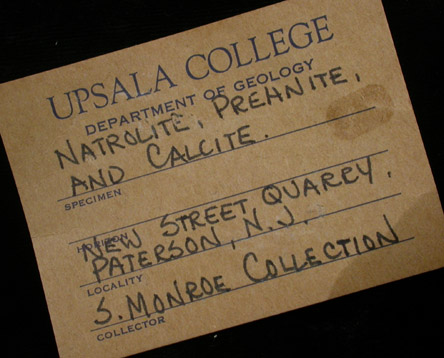 UPSALA COLLEGE
DEPARTMENT OF GEOLOGY
NATROLITE, PREHNITE,
AND CALCITE.
SPECIMEN
HORIZON
NEW STREET QUARRY,
PATERSON, N.J.
LOCALITY
S. MONROE COLLECTION
COLLECTOR